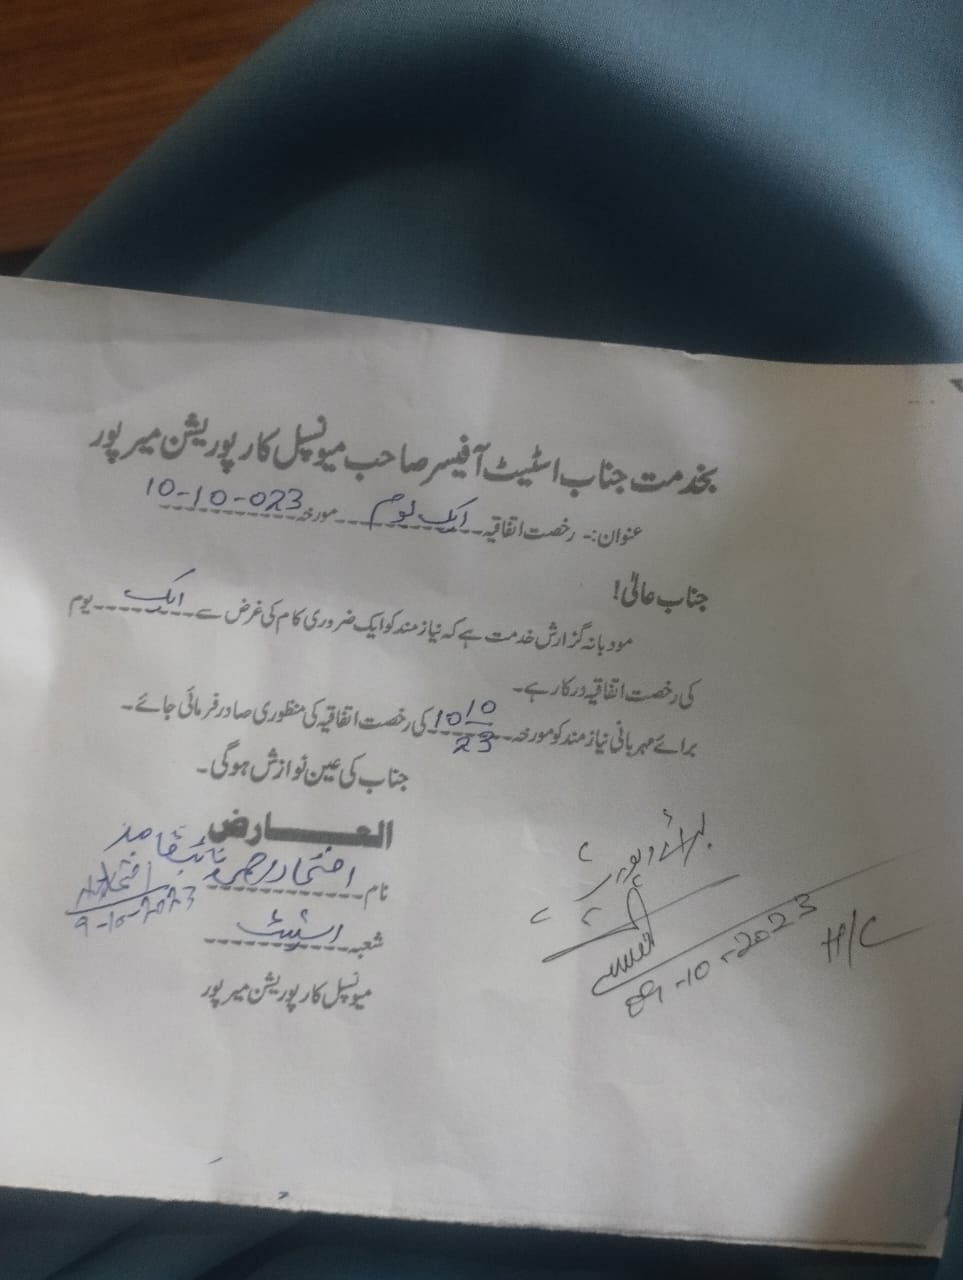 بخدمت جناب اسٹیٹ آفیسر صاحب میونسپل کارپوریشن میرپور
عنوان:- رخصت اتفاقیہ ایک یوم مورخہ 10-10-023
جناب عالی!
مودبانہ گزارش خدمت ہے کہ نیازمند کو ایک ضروری کام کی غرض سے ایک یوم
کی رخصت اتفاقیہ درکار ہے۔
برائے مہربانی نیازمند کو مورخہ 10/10/23 کی رخصت اتفاقیہ کی منظوری صادر فرمائی جائے۔
جناب کی عین نوازش ہوگی۔
العارض
نام افتخار احمد نائب قاصد
9-10-2023
شعبہ اسٹیٹ
میونسپل کارپوریشن میرپور
برائے رپورٹ
09-10-2023
H/C